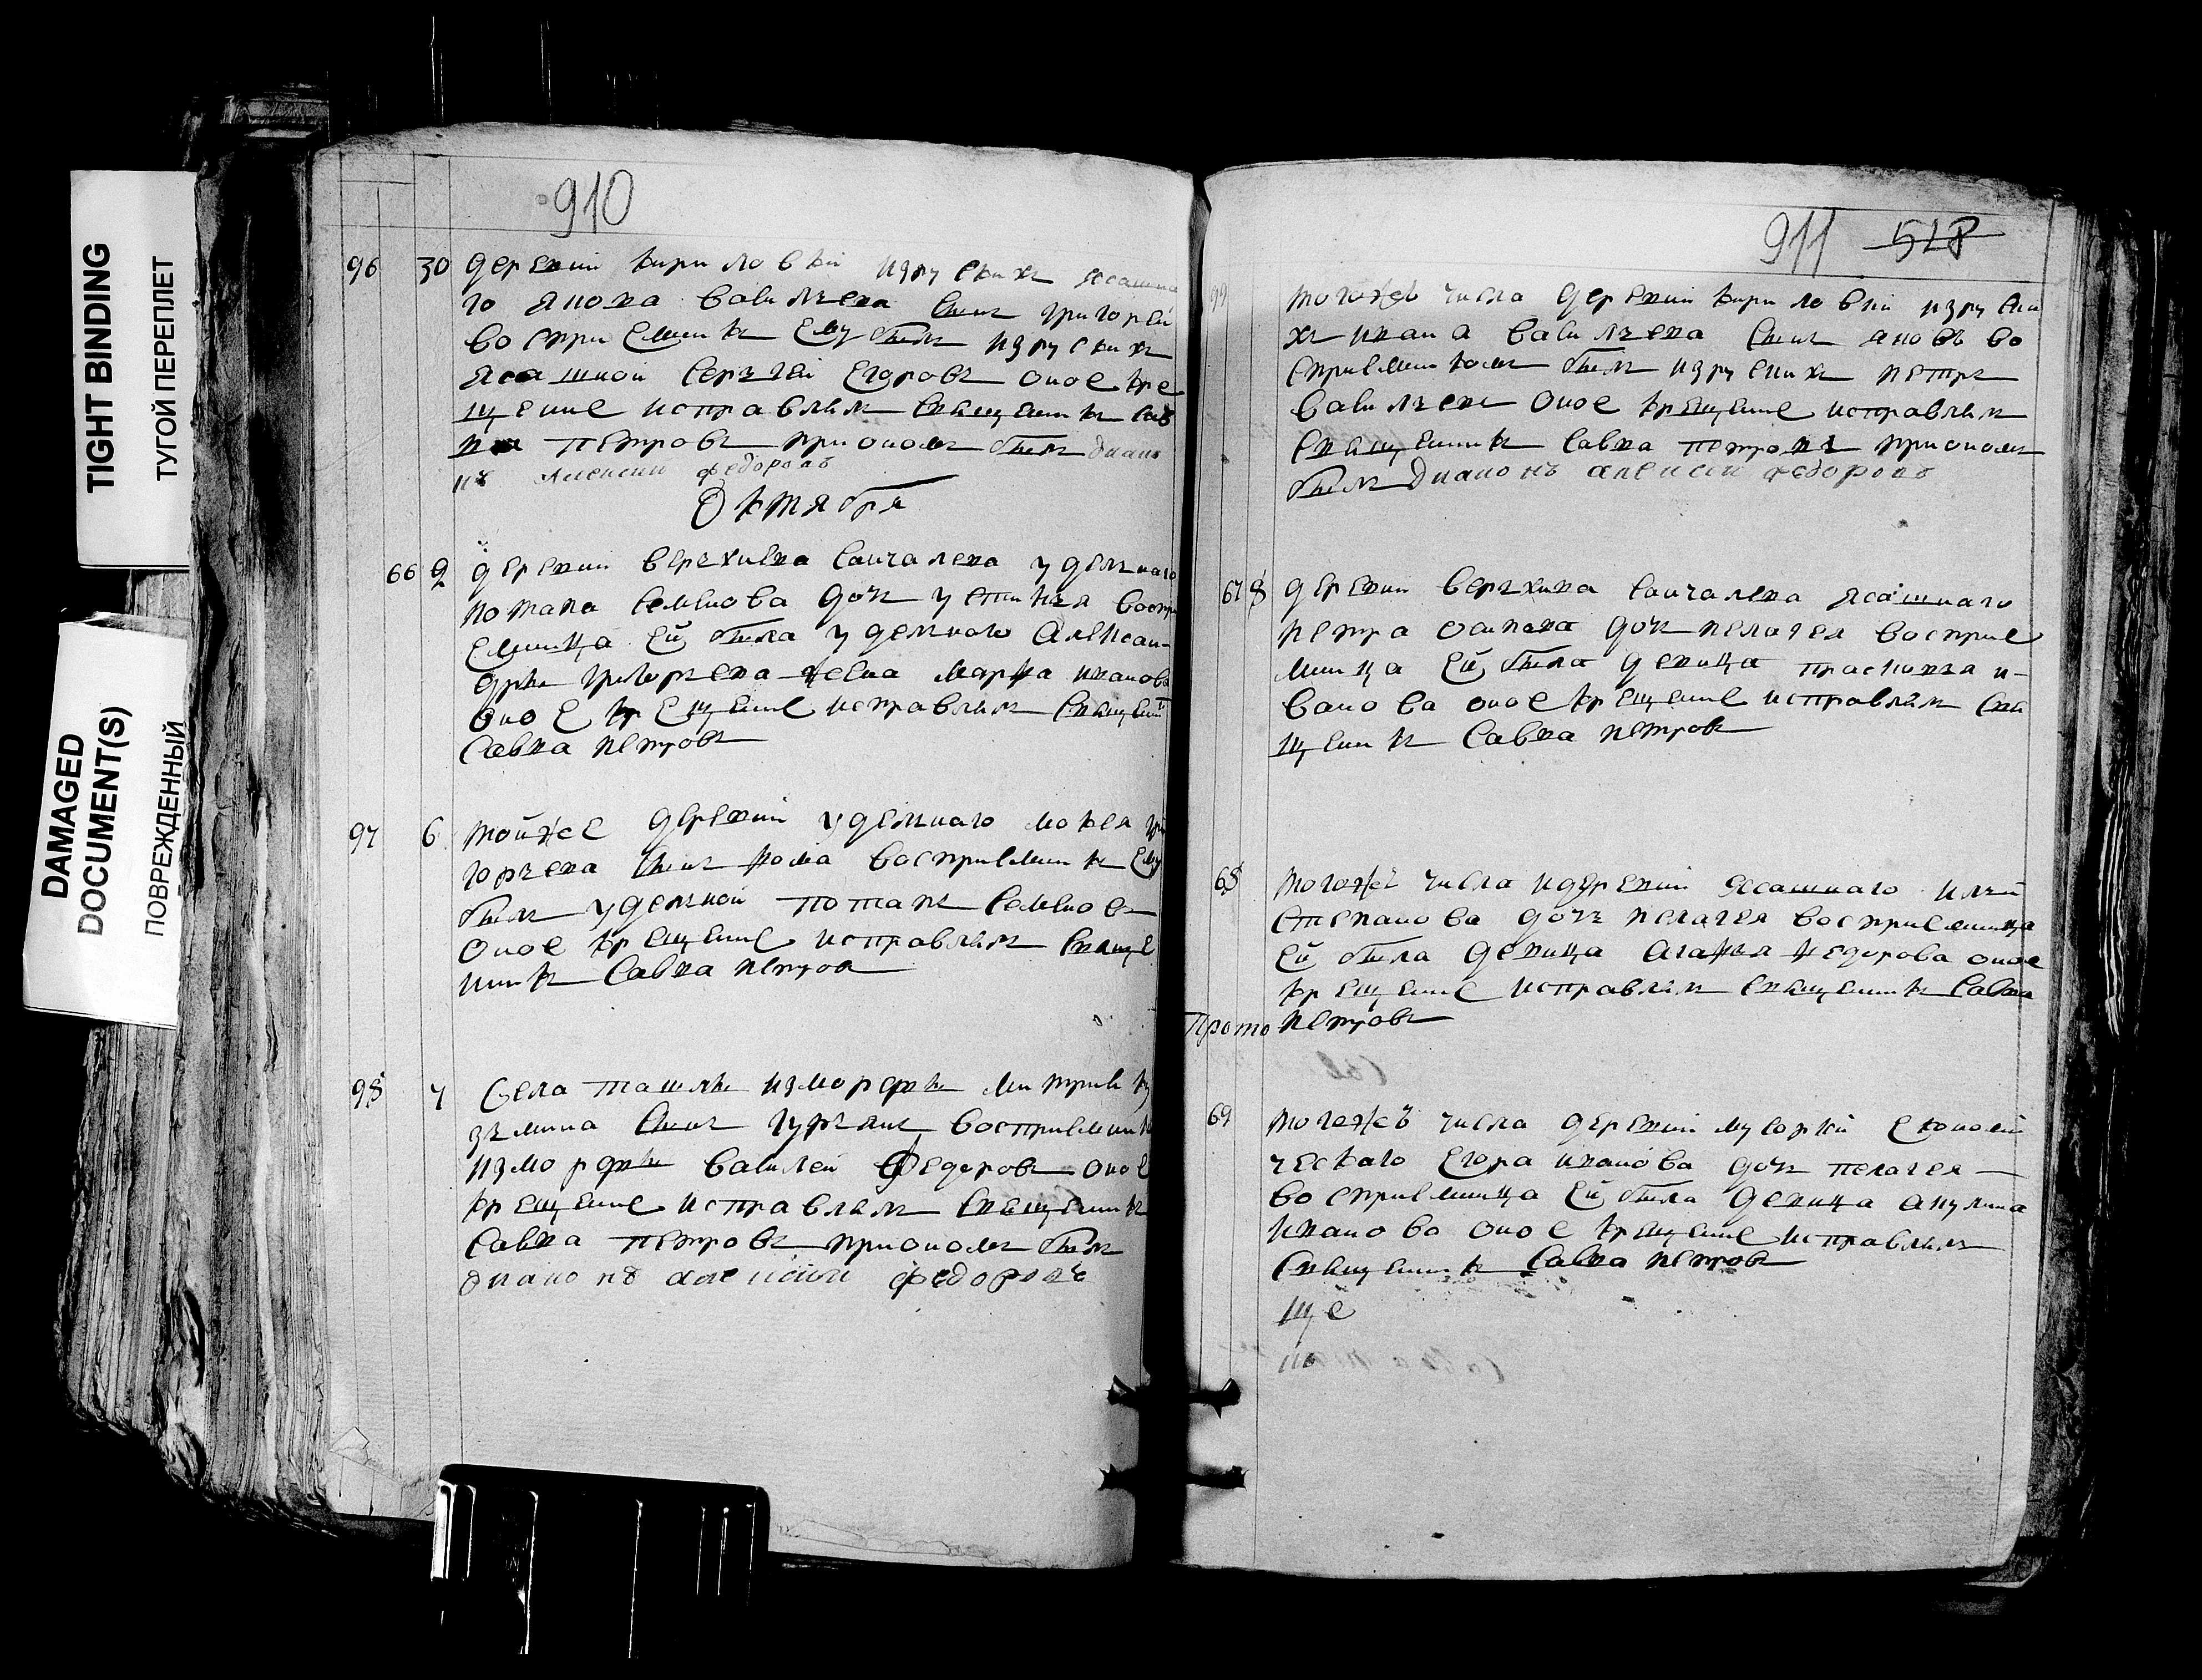 TIGHT BINDING
ТУГОЙ ПЕРЕПЛЕТ
DAMAGED
DOCUMENT(S)
ПОВРЕЖДЕННЫЙ
910
96 30 деревни кириловки изрускихъ ясашна
го якова васильева сынъ григореи
воспри емникъ ему былъ изрускихъ
ясашной сергѣй егоровъ оное кре
щение исправлялъ священникъ сав
ва петровъ приономъ былъ диако
нъ Алексии федоровъ
Октября
66 2 деревни верхнева санчалева удельнаго
потапа семенова дочь устинья воспри
емница ей была удельнаго Алексан-
дры григорьева жена марфа иванова
оное крещение исправлялъ священ
савва петровъ
97 6 тойже деревни удельнаго мокея гри
горьева сынъ фома восприемникъ ему
былъ удельной потапъ семенов
оное крещение исправлялъ свяще
нникъ савва петров
98 7 Села ташлы измордвы митрия ку
зьмина сынъ гурьянъ восприемник
измордвы василей Федоровъ оное
крещение исправлялъ священникъ
савва петровъ приономъ былъ
диаконъ алексии федоровъ
911 528
99 тогожъ числа деревни кириловки изруски
хъ ивана васильева сынъ яковъ во
сприемникомъ былъ изрускихъ петръ
васильевъ оное крещение исправлялъ
священникъ савва петровъ приономъ
былъ диаконъ алексии федоровъ
67 8 деревни верхнева санчалева ясашнаго
петра осипова дочь пелагея восприе
мница ей была девица прасковья и-
ванова оное крещение исправлялъ свя
щенникъ савва петровъ
68 тогожъ числа идеревни ясашнаго ильи
степанова дочь пелагея восприемница
ей была девица агафья федорова оное
крещение исправлялъ священникъ савва
Прото петровъ
69 тогожъ числа деревни мусорки економи
ческаго егора иванова дочь пелагея
восприемница ей была девица акулина
иванова оное крещение исправлялъ
священникъ савва петровъ
ще